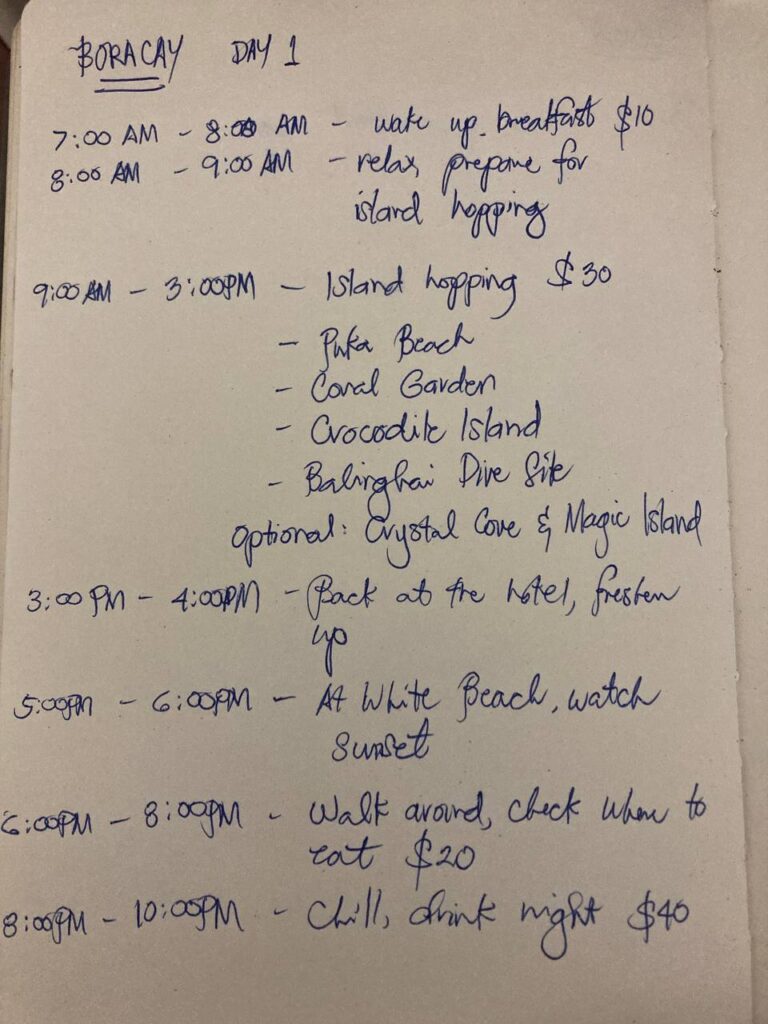 BORACAY DAY 1
7:00 AM - 8:00 AM - wake up. breakfast $10
8:00 AM - 9:00 AM - relax, prepare for
island hopping
9:00 AM - 3:00PM - Island hopping $30
- Puka Beach
- Coral Garden
- Crocodile Island
- Balinghai Dive Site
Optional: Crystal Cove & Magic Island
3:00 PM - 4:00PM - Back at the hotel, freshen
up
5:00PM - 6:00PM - At White Beach, watch
sunset
6:00PM - 8:00PM - Walk around, check where to
eat $20
8:00PM - 10:00PM - Chill, drink night $40